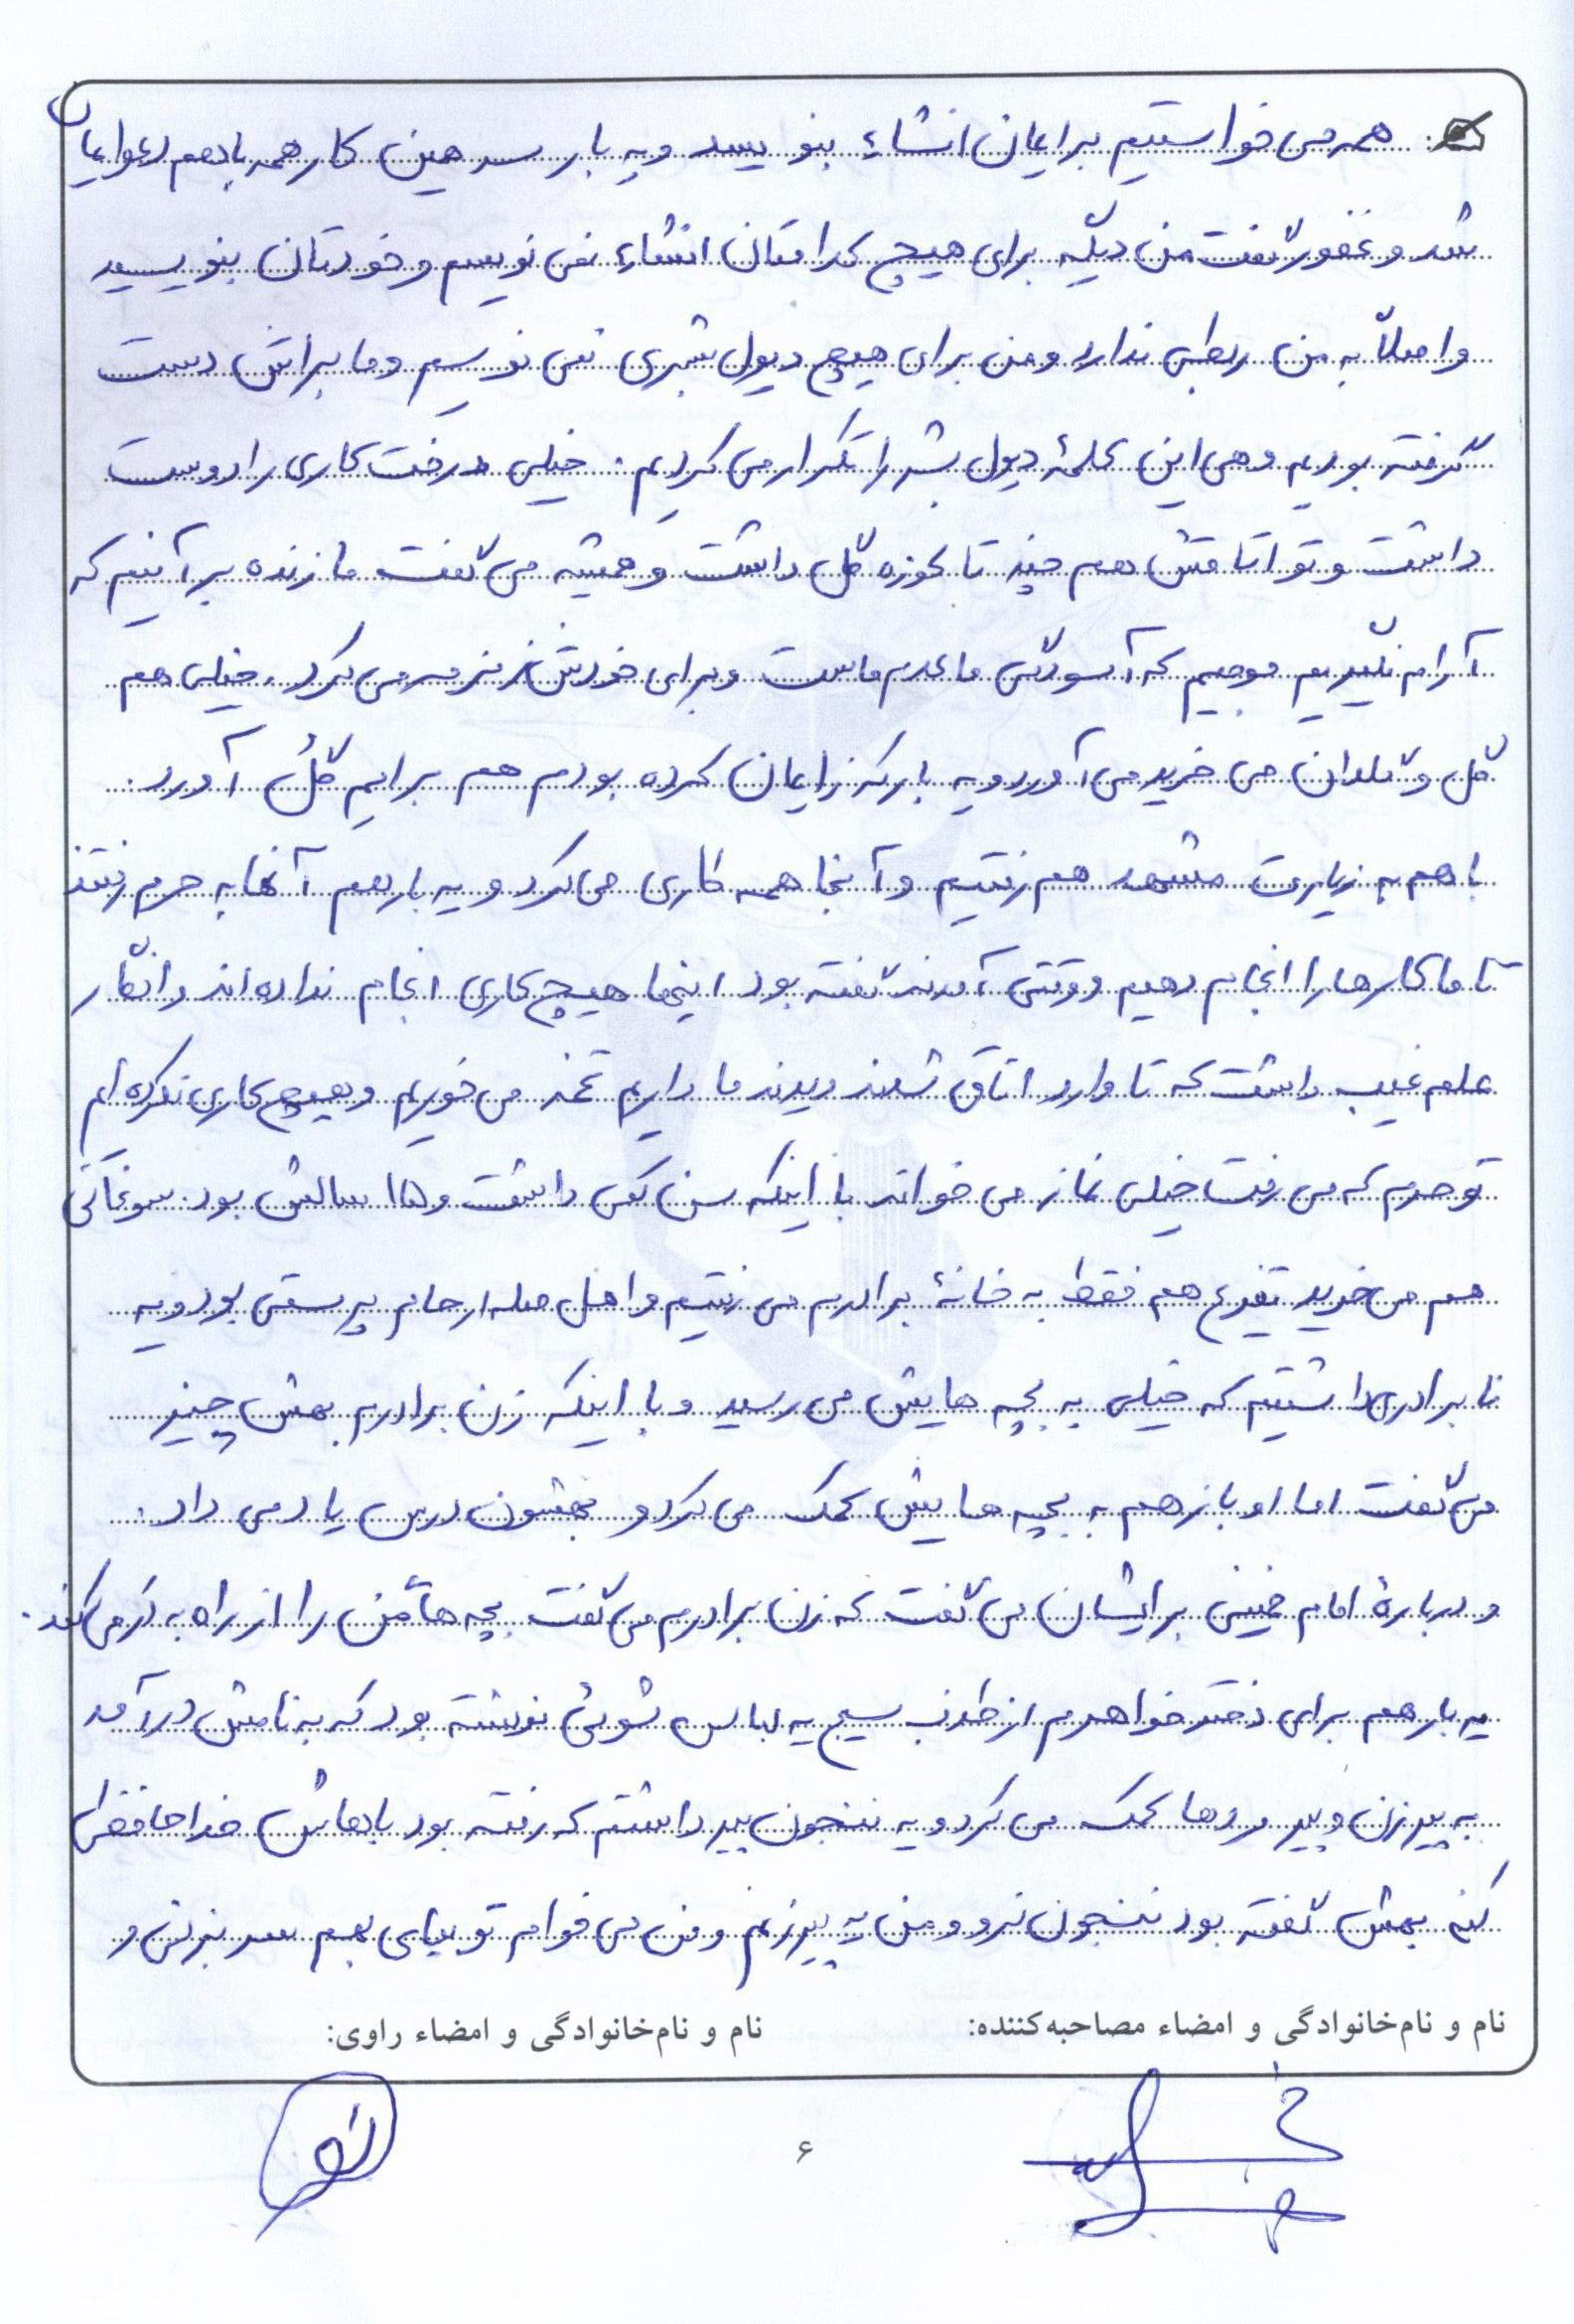 همه می خواستیم برایمان انشاء بنویسد و یه بار سر همین کار همه باهم دعوایمان
شد و غفور گفت من دیگه برای هیچ کدامتان انشاء نمی نویسم و خودتان بنویسید
و اصلاً به من ربطی ندارد و من برای هیچ دیول بشری نمی نویسم و ما براش دست
گرفته بودیم و هی این کلمهٔ دیول بشر را تکرار می کردیم. خیلی درخت کاری را دوست
داشت و تو اتاقش هم چند تا کوزه گل داشت و همیشه می گفت ما زنده بر آنیم که
آرام نگیریم موجیم که آسودگی ما عدم ماست و برای خودش زمزمه می کرد. خیلی هم
گل و گلدان می خرید می آورد و یه بار که زایمان کرده بودم هم برایم گل آورد.
با هم به زیارت مشهد هم رفتیم و آنجا همه کاری می کرد و یه بار هم آنها به حرم رفتند
تا ما کارها را انجام دهیم و وقتی آمدند گفته بود اینها هیچ کاری انجام نداده اند و انگار
علم غیب داشت که تا وارد اتاق شدند دیدند ما داریم تخمه می خوریم و هیچ کاری نکرده ایم
تو حرم که می رفت خیلی نماز می خواند با اینکه سن کمی داشت و ۱۵ سالش بود. سوغاتی
هم می خرید تفریح هم فقط به خانهٔ برادرم می رفتیم و اهل صله ارحام پرستی بود و یه
نابرادری داشتیم که خیلی به بچه هایش می رسید و با اینکه زن برادرم بهش چیز
می گفت اما او باز هم به بچه هایش کمک می کرد و بهشون درس یاد می داد.
و دربارهٔ امام خمینی برایشان می گفت که زن برادرم می گفت بچه های من را از راه به در می کند.
یه بار هم برای دختر خواهرم از طرف بسیج یه لباس شوئی نوشته بود که به نامش درآمد
به پیرزن و پیرمردها کمک می کرد و یه ننجون پیر داشتم که رفته بود باهاش خداحافظی
کنه بهش گفته بود ننجون نرو و من یه پیرزنم و من می خوام تو بیای بهم سر بزنی و
نام و نام‌خانوادگی و امضاء مصاحبه‌کننده:
نام و نام‌خانوادگی و امضاء راوی:
۶